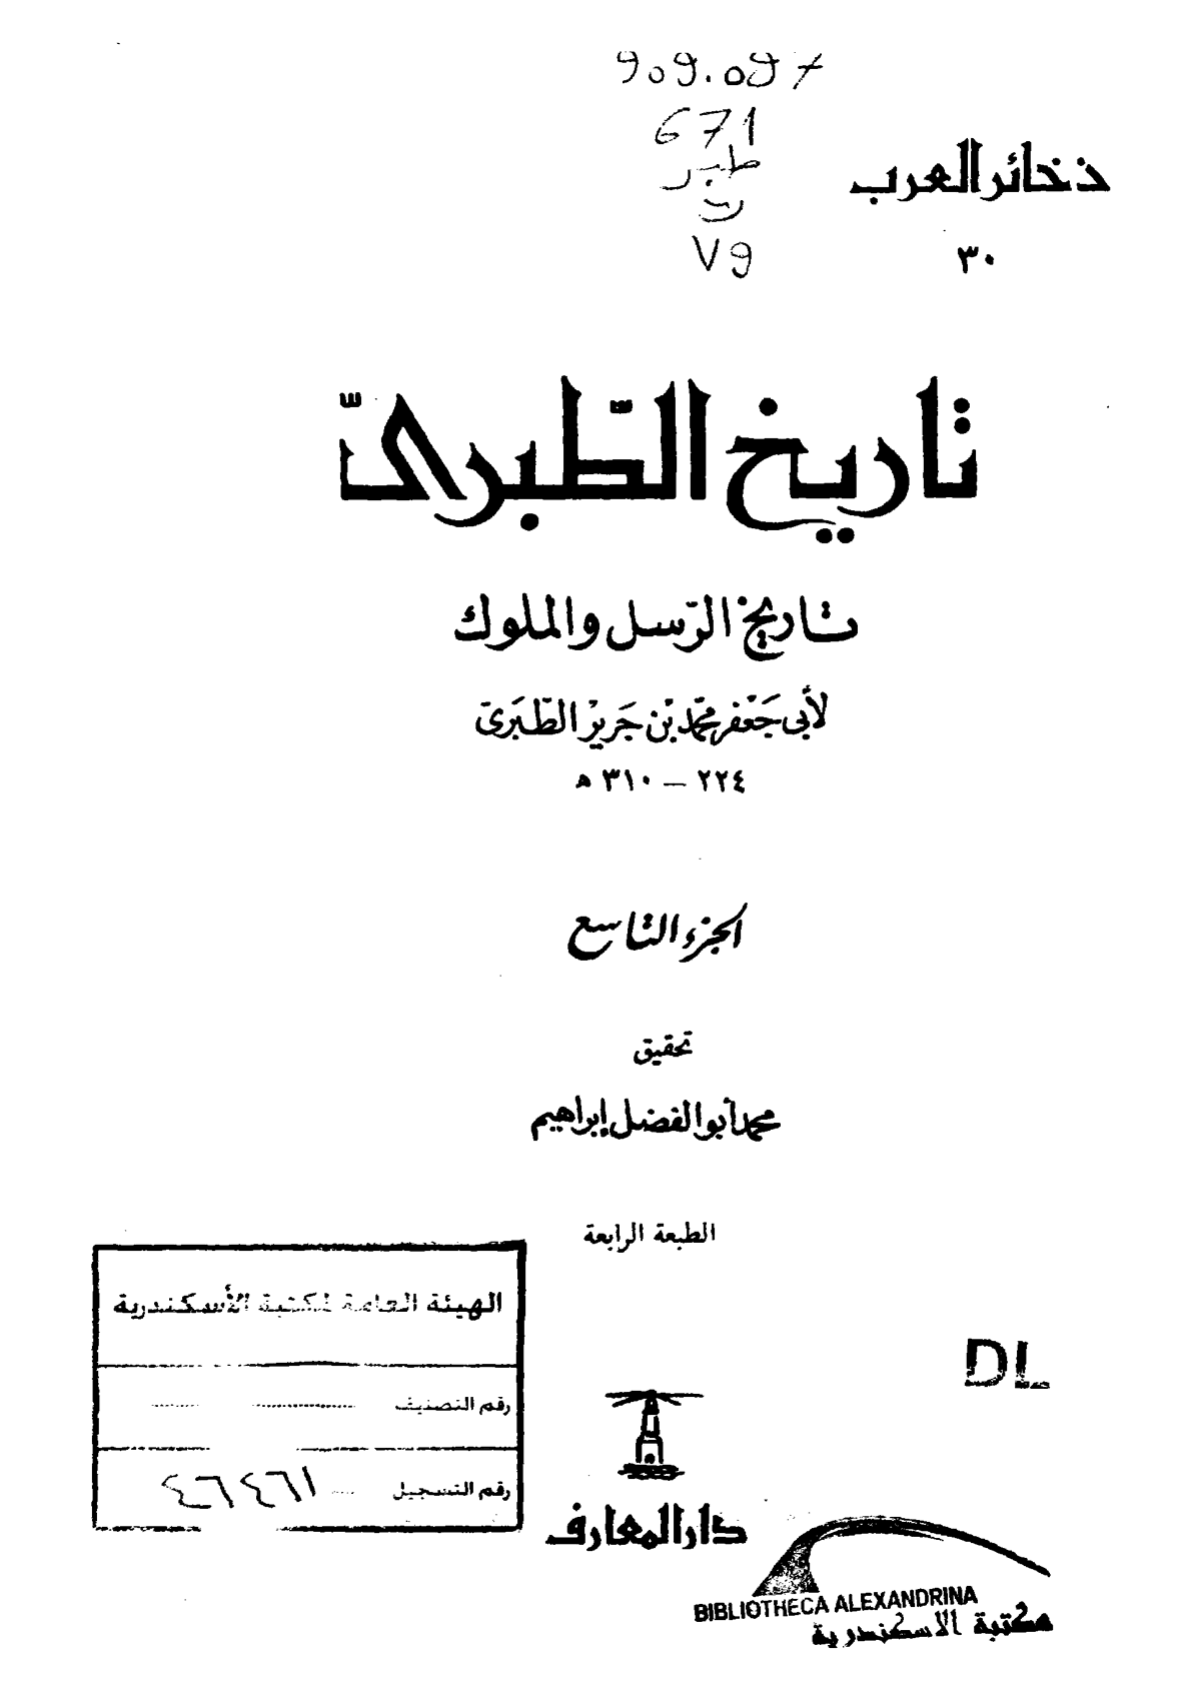 909.097
671
طبر
ت
V9
ذخائر العرب
٣٠
تاريخ الطّبرىّ
تاريخ الرّسل والملوك
لأبى جَعْفر محمّد بْن جَرِيرْ الطّبَرىّ
٢٢٤ – ٣١٠ ه
الجزء التاسع
تحقيق
محمد أبو الفضل إبراهيم
الطبعة الرابعة
الهيئة العامة لمكتبة الأسكندرية
رقم التصنيف
رقم التسجيل
DL
دار المعارف
BIBLIOTHECA ALEXANDRINA
مكتبة الاسكندرية